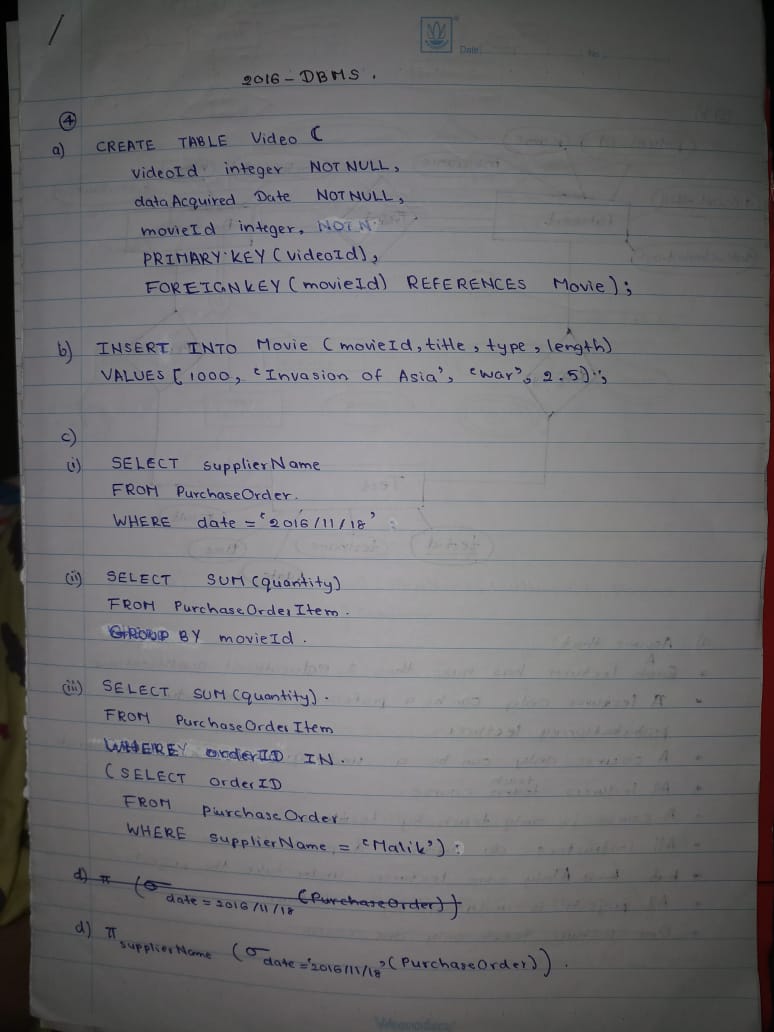 /
Date:
No
2016 - DBMS .
④
a) CREATE TABLE Video (
videoId integer NOT NULL,
dataAcquired Date NOT NULL,
movieId integer, NOT N
PRIMARY KEY (videoId),
FOREIGN KEY (movieId) REFERENCES Movie);
b) INSERT INTO Movie (movieId, title, type, length)
VALUES [1000, 'Invasion of Asia', 'war', 2.5);
c)
(i) SELECT supplierName
FROM PurchaseOrder.
WHERE date = '2016/11/18' ;
(ii) SELECT SUM (quantity)
FROM PurchaseOrderItem.
GROUP BY movieId.
(iii) SELECT SUM (quantity).
FROM PurchaseOrderItem
WHERE orderID IN.
(SELECT orderID
FROM PurchaseOrder
WHERE supplierName = 'Malik') ;
d) π (σ date = 2016/11/18 (PurchaseOrder))
d) π supplierName (σ date = '2016/11/18' (PurchaseOrder)).